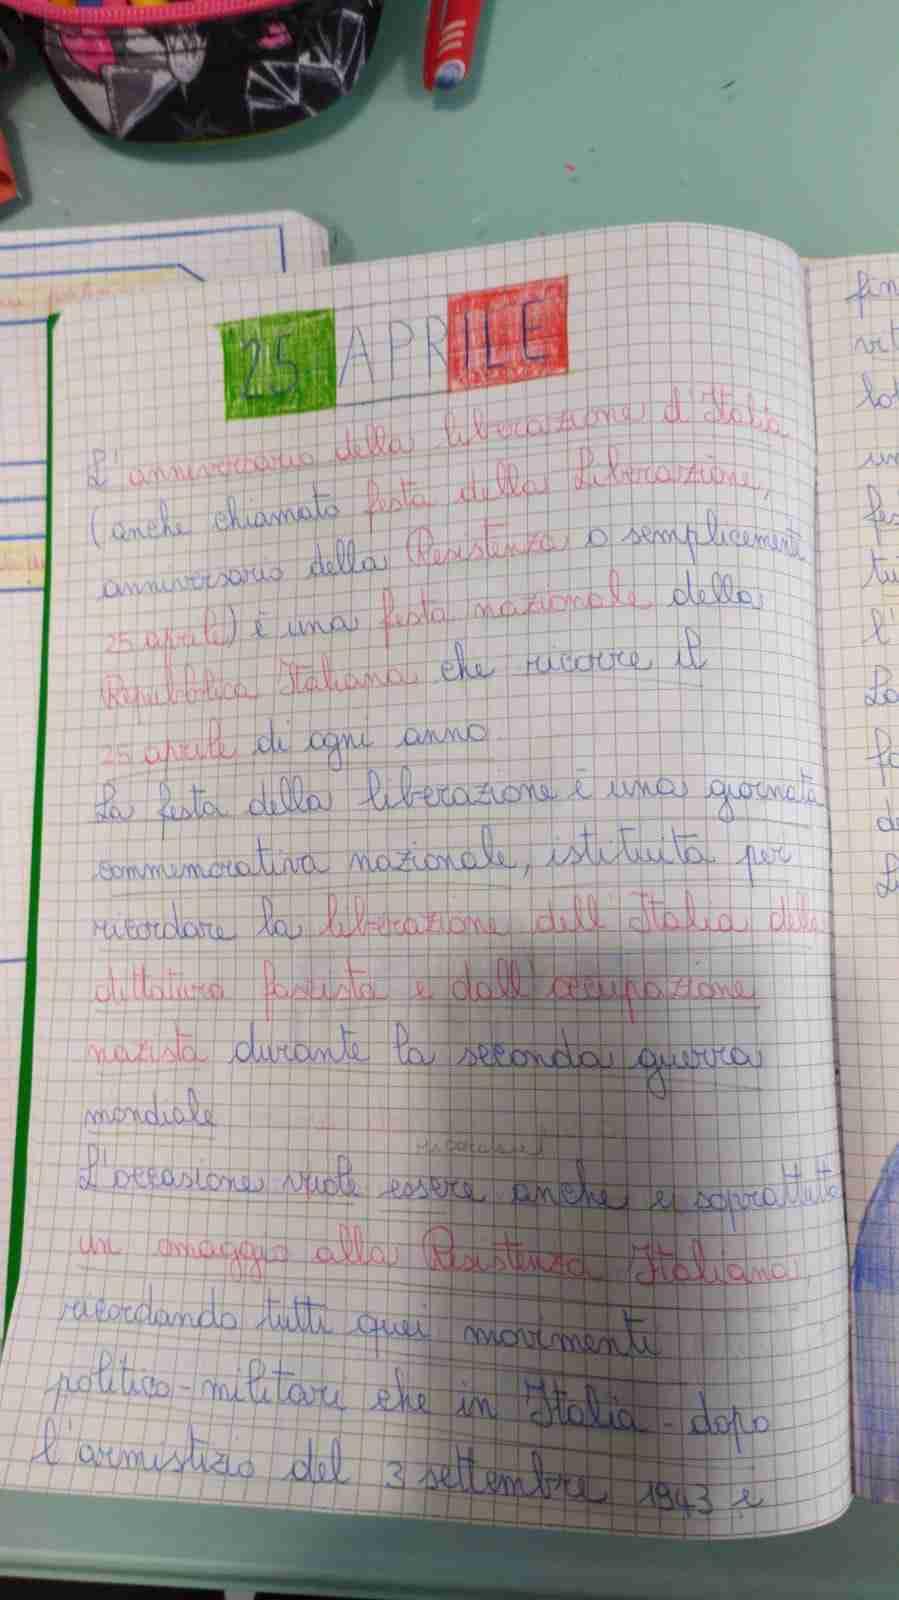 25 APRILE
L'anniversario della liberazione d'Italia
(anche chiamato festa della Liberazione,
anniversario della Resistenza o semplicemente
25 aprile) è una festa nazionale della
Repubblica Italiana che ricorre il
25 aprile di ogni anno
La festa della liberazione è una giornata
commemorativa nazionale, istituita per
ricordare la liberazione dell'Italia dalla
dittatura fascista e dall'occupazione
nazista durante la seconda guerra
mondiale
L'occasione vuole essere anche e soprattutto
un omaggio alla Resistenza Italiana,
ricordando tutti quei movimenti
politico-militari che in Italia - dopo
l'armistizio del 3 settembre 1943 e